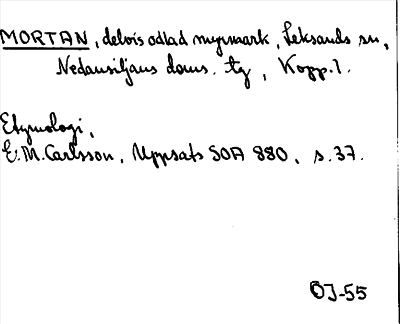 MORTAN, delvis odlad myrmark, Leksands sn,
Nedansiljans doms. tg, Kopp. l.
Etymologi,
E.M. Carlsson, Uppsats SOA 880, s. 37.
OJ-55